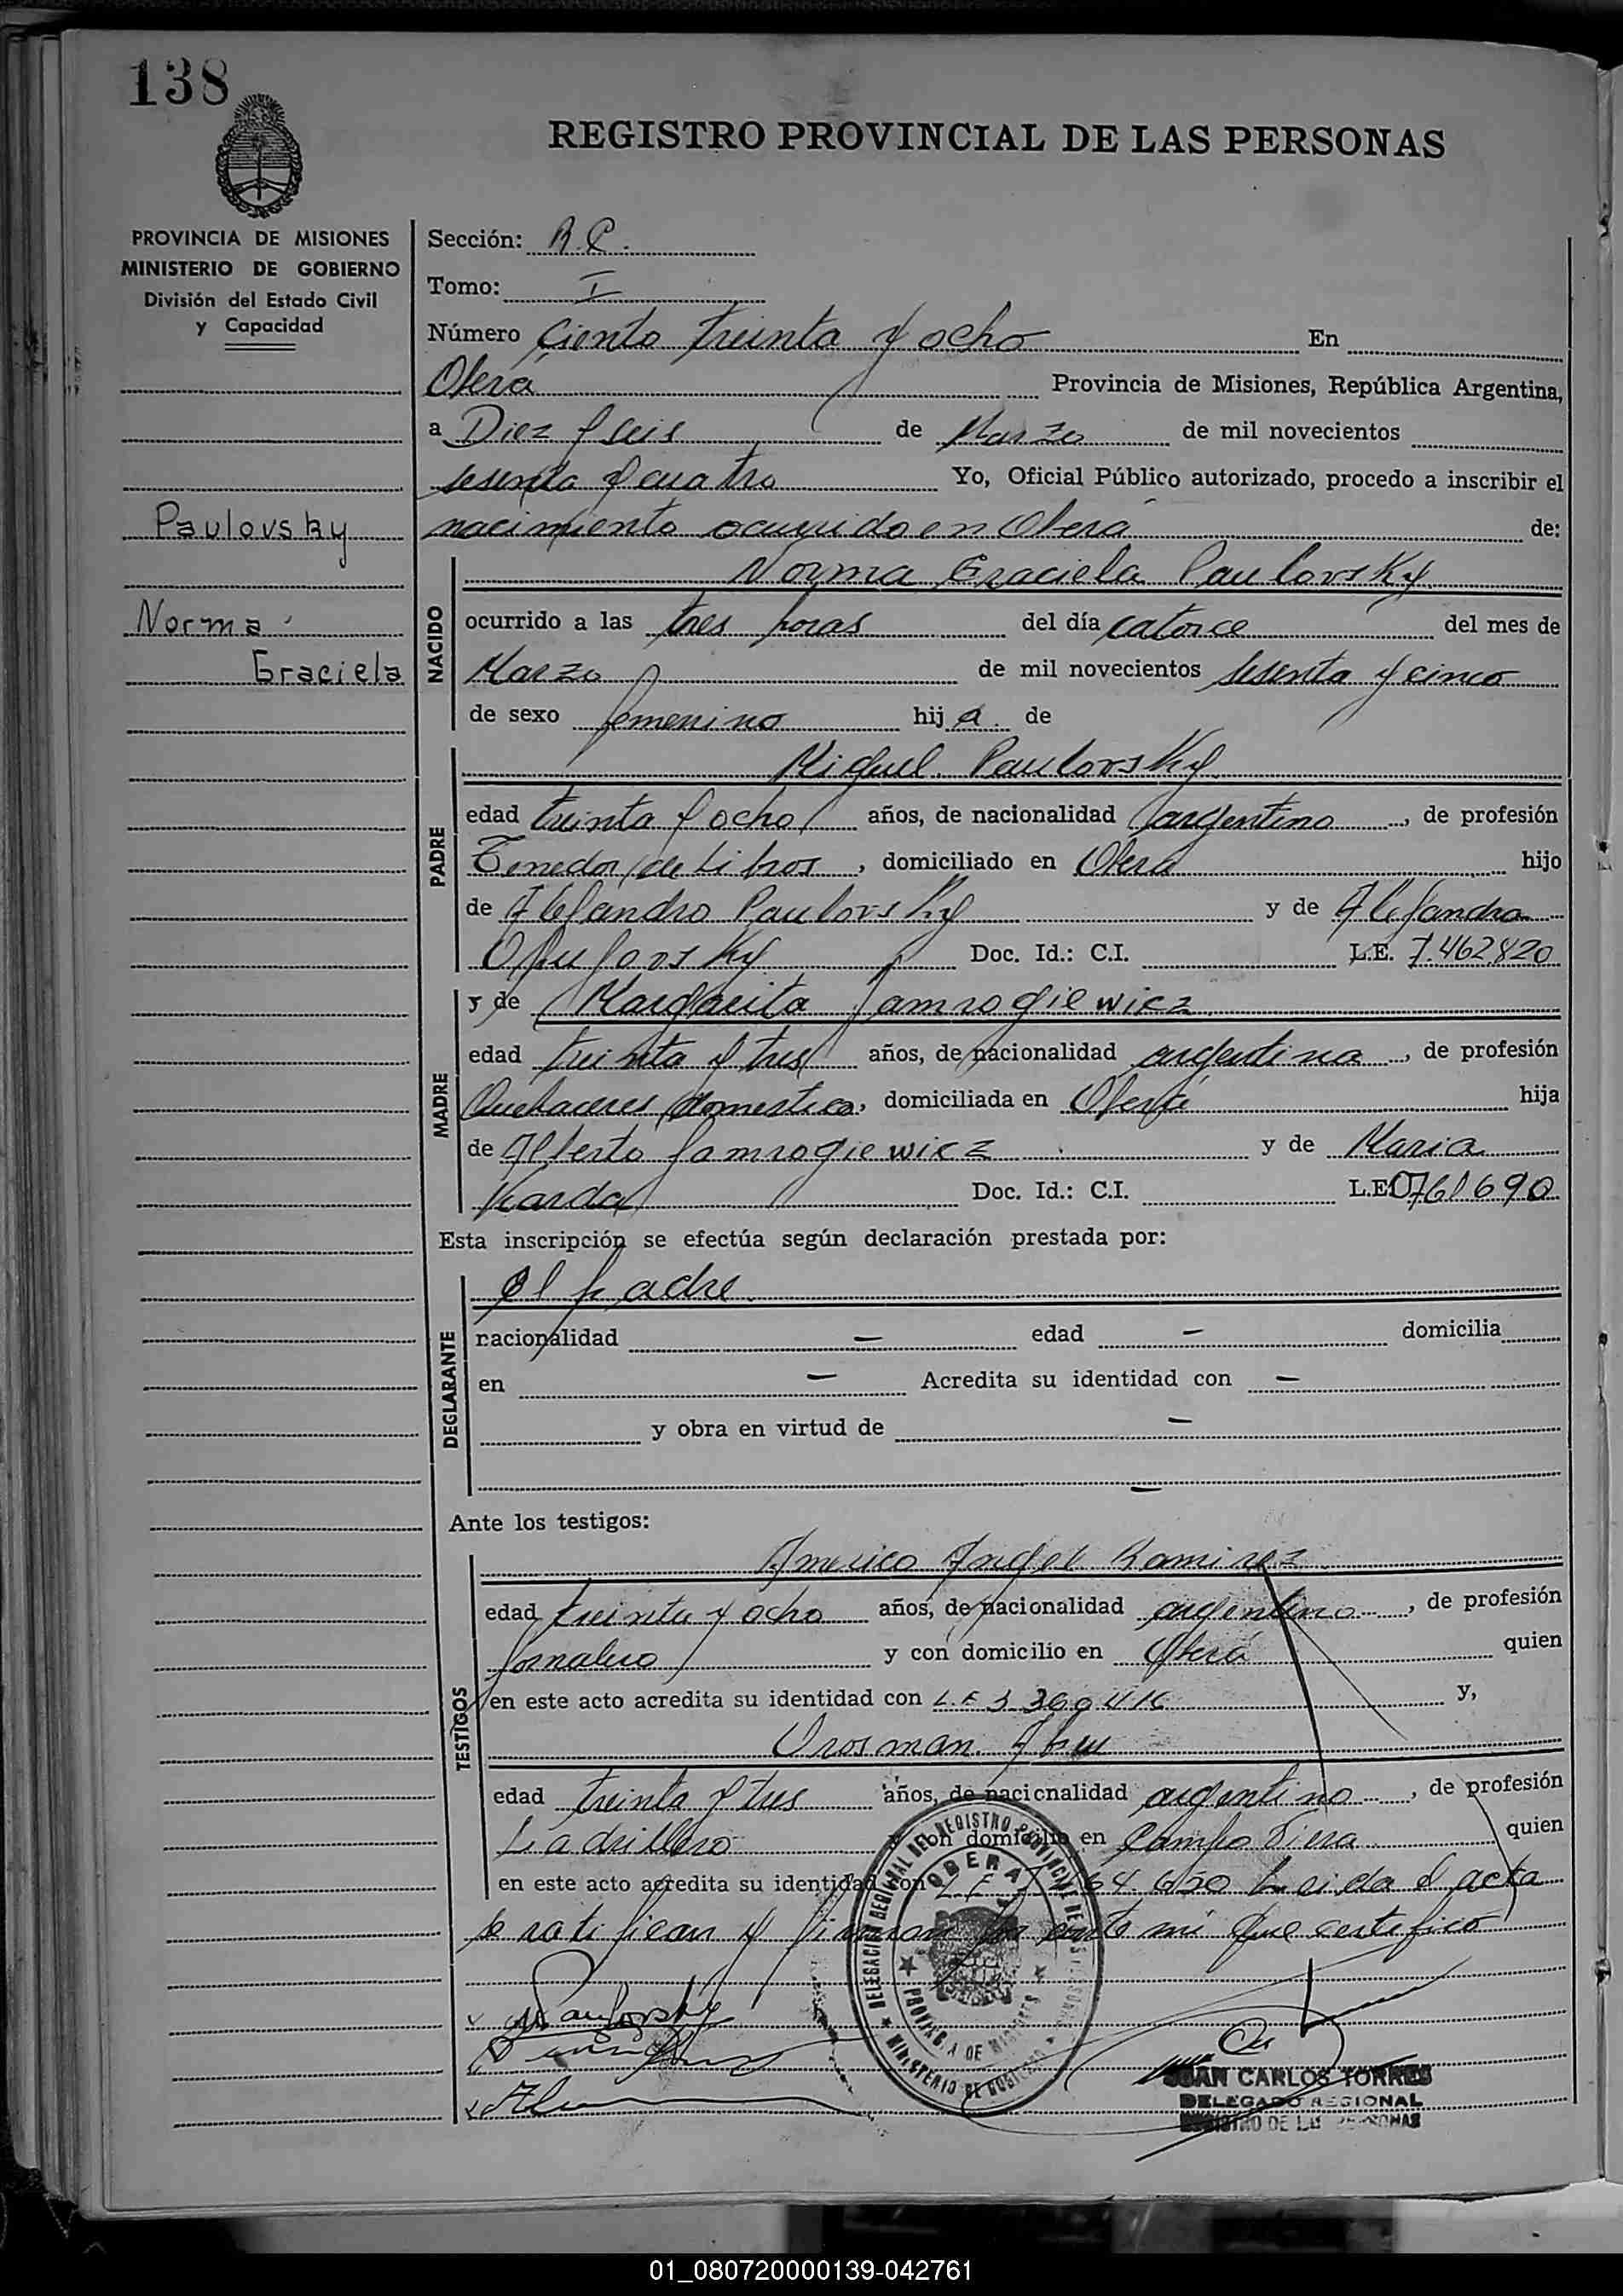 138
REGISTRO PROVINCIAL DE LAS PERSONAS
PROVINCIA DE MISIONES
MINISTERIO DE GOBIERNO
División del Estado Civil
y Capacidad
Paulovsky
Norma
Graciela
Sección:
Tomo: I
Número Ciento treinta y ocho En
Oberá Provincia de Misiones, República Argentina,
a Diez y seis de Marzo de mil novecientos
sesenta y cuatro Yo, Oficial Público autorizado, procedo a inscribir el
nacimiento ocurrido en Oberá de:
NACIDO
Norma Graciela Paulovsky
ocurrido a las tres horas del día catorce del mes de
Marzo de mil novecientos sesenta y cinco
de sexo femenino hij a. de
PADRE
Miguel Paulovsky
edad treinta y ocho años, de nacionalidad argentino, de profesión
Tenedor de Libros, domiciliado en Oberá hijo
de Alejandro Paulovsky y de Alejandra
Doc. Id.: C.I. L.E. 7.462.820
MADRE
y de Margarita Jamrogiewicz
edad treinta y tres años, de nacionalidad argentina, de profesión
Quehaceres domestico, domiciliada en Oberá hija
de Alberto Jamrogiewicz y de Maria
Karda Doc. Id.: C.I. L.E. 0761690
Esta inscripción se efectúa según declaración prestada por:
DECLARANTE
el padre
nacionalidad — edad — domicilia
en — Acredita su identidad con —
y obra en virtud de —
—
Ante los testigos:
TESTIGOS
Americo Angel Ramirez
edad treinta y ocho años, de nacionalidad argentino, de profesión
Jornalero y con domicilio en Oberá quien
en este acto acredita su identidad con L.E. y,
Orosman
edad treinta y tres años, de nacionalidad argentino, de profesión
Ladrillero y con domicilio en Campo Viera quien
en este acto acredita su identidad con L.E. Leida el acta
se ratifican y firman por ante mi que certifico
Paulovsky
DELEGACION REGIONAL DEL REGISTRO PROVINCIAL DE LAS PERSONAS
OBERA
PROVINCIA DE MISIONES
MINISTERIO DE GOBIERNO
JUAN CARLOS TORRES
DELEGADO REGIONAL
REGISTRO DE LAS PERSONAS
01_080720000139-042761